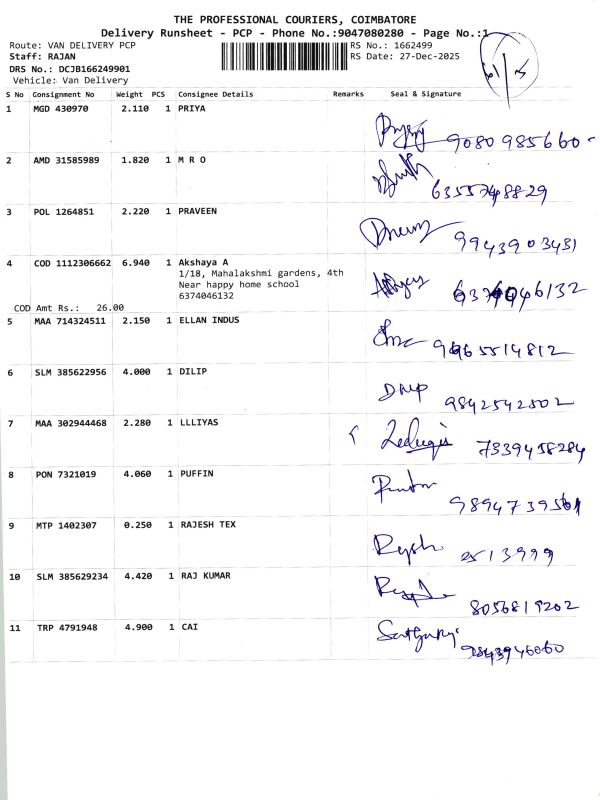 THE PROFESSIONAL COURIERS, COIMBATORE
Delivery Runsheet - PCP - Phone No.:9047080280 - Page No.:1
Route: VAN DELIVERY PCP
RS No.: 1662499
Staff: RAJAN
RS Date: 27-Dec-2025
DRS No.: DCJB166249901
Vehicle: Van Delivery
S No Consignment No Weight PCS Consignee Details Remarks Seal & Signature
1 MGD 430970 2.110 1 PRIYA
9080985660
2 AMD 31585989 1.820 1 M R O
6355748829
3 POL 1264851 2.220 1 PRAVEEN
9943903431
4 COD 1112306662 6.940 1 Akshaya A
1/18, Mahalakshmi gardens, 4th
Near happy home school
6374046132
6374046132
COD Amt Rs.: 26.00
5 MAA 714324511 2.150 1 ELLAN INDUS
9965514812
6 SLM 385622956 4.000 1 DILIP
9842542502
7 MAA 302944468 2.280 1 LLLIYAS
7339458284
8 PON 7321019 4.060 1 PUFFIN
9894739561
9 MTP 1402307 0.250 1 RAJESH TEX
2513999
10 SLM 385629234 4.420 1 RAJ KUMAR
8056819202
11 TRP 4791948 4.900 1 CAI
9843946060